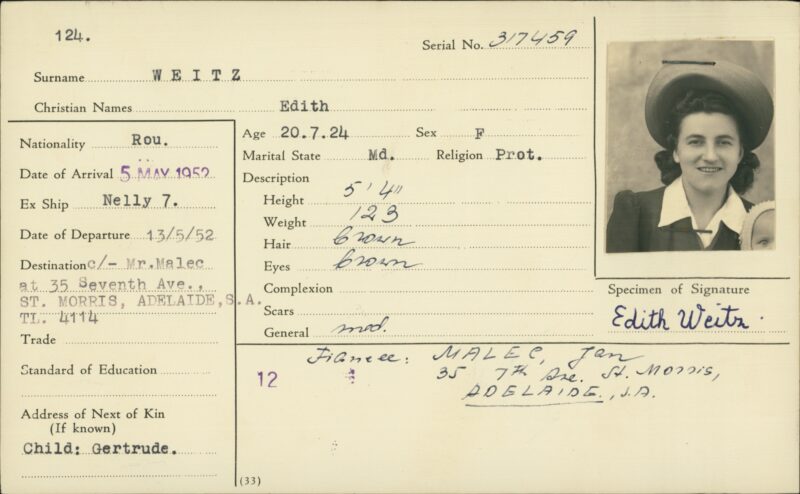 124.
Serial No. 317459
Surname WEITZ
Christian Names Edith
Nationality Rou.
Date of Arrival 5 MAY 1952
Ex Ship Nelly 7.
Date of Departure 13/5/52
Destination c/- Mr.Malec
at 35 Seventh Ave.,
ST. MORRIS, ADELAIDE, S.A.
TL. 4114
Trade
Standard of Education
Address of Next of Kin
(If known)
Child: Gertrude.
Age 20.7.24 Sex F
Marital State Md. Religion Prot.
Description
Height 5' 4"
Weight 123
Hair brown
Eyes brown
Complexion
Scars
General med.
Specimen of Signature
Edith Weitz.
12
Fiancee: MALEC, Jan
35 7th Ave. St. Morris,
ADELAIDE., S.A.
(33)